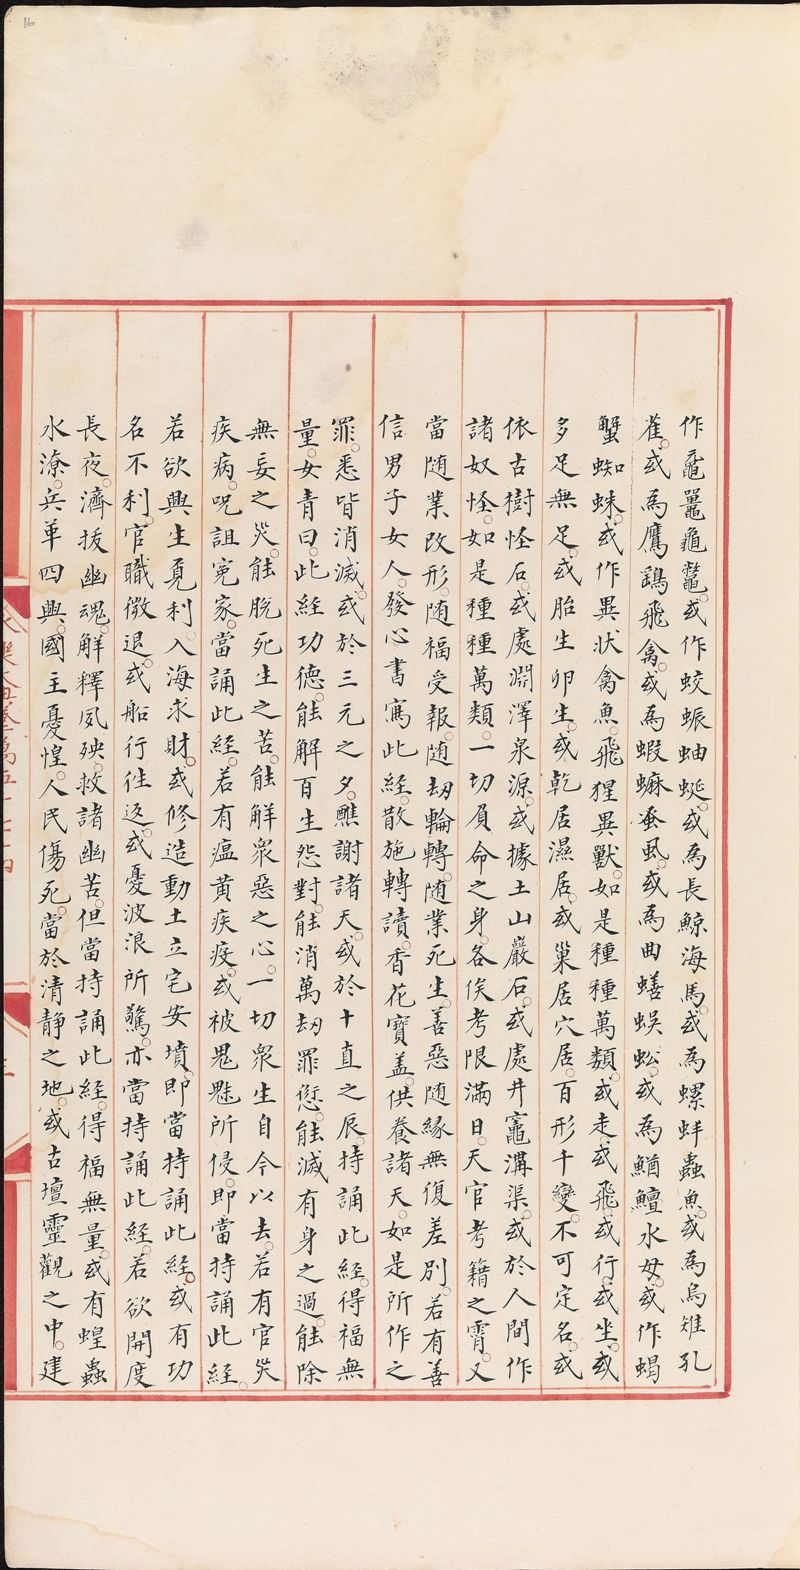 16
作黿鼉龜鼈或作蛟蜃蚰蜒或為長鯨海馬或為螺蚌蟲魚或為烏雉孔
雀或為鷹鷂飛禽或為蝦蟒蚤虱或為曲蟮蜈蚣或為鰌鱣水母或作蝎
蟹蜘蛛或作異狀禽魚飛猩異獸如是種種萬類或走或飛或行或坐或
多足無足或胎生卵生或乾居濕居或巢居穴居百形千變不可定名或
依古樹怪石或處淵澤泉源或據土山巖石或處井竈溝渠或於人間作
諸奴怪如是種種萬類一切負命之身各俟考限滿日天官考籍之霄又
當随業改形随福受報随刼輪轉随業死生善惡随緣無復差別若有善
信男子女人發心書寫此經散施轉讀香花寶盖供養諸天如是所作之
罪悉皆消滅或於三元之夕醮謝諸天或於十直之辰持誦此經得福無
量女青曰此經功德能解百生怨對能消萬刼罪愆能滅有身之過能除
無妄之災能脫死生之苦能解衆惡之心一切衆生自今以去若有官災
疾病呪詛寃家當誦此經若有瘟黄疾疫或被鬼魅所侵即當持誦此經
若欲興生覔利入海求財或修造動土立宅安墳即當持誦此經或有功
名不利官職微退或船行徃返或憂波浪所驚亦當持誦此經若欲開度
長夜濟拔幽魂解釋夙殃救諸幽苦但當持誦此經得福無量或有蝗蟲
水潦兵革四興國主憂惶人民傷死當於清靜之地或古壇靈觀之中建